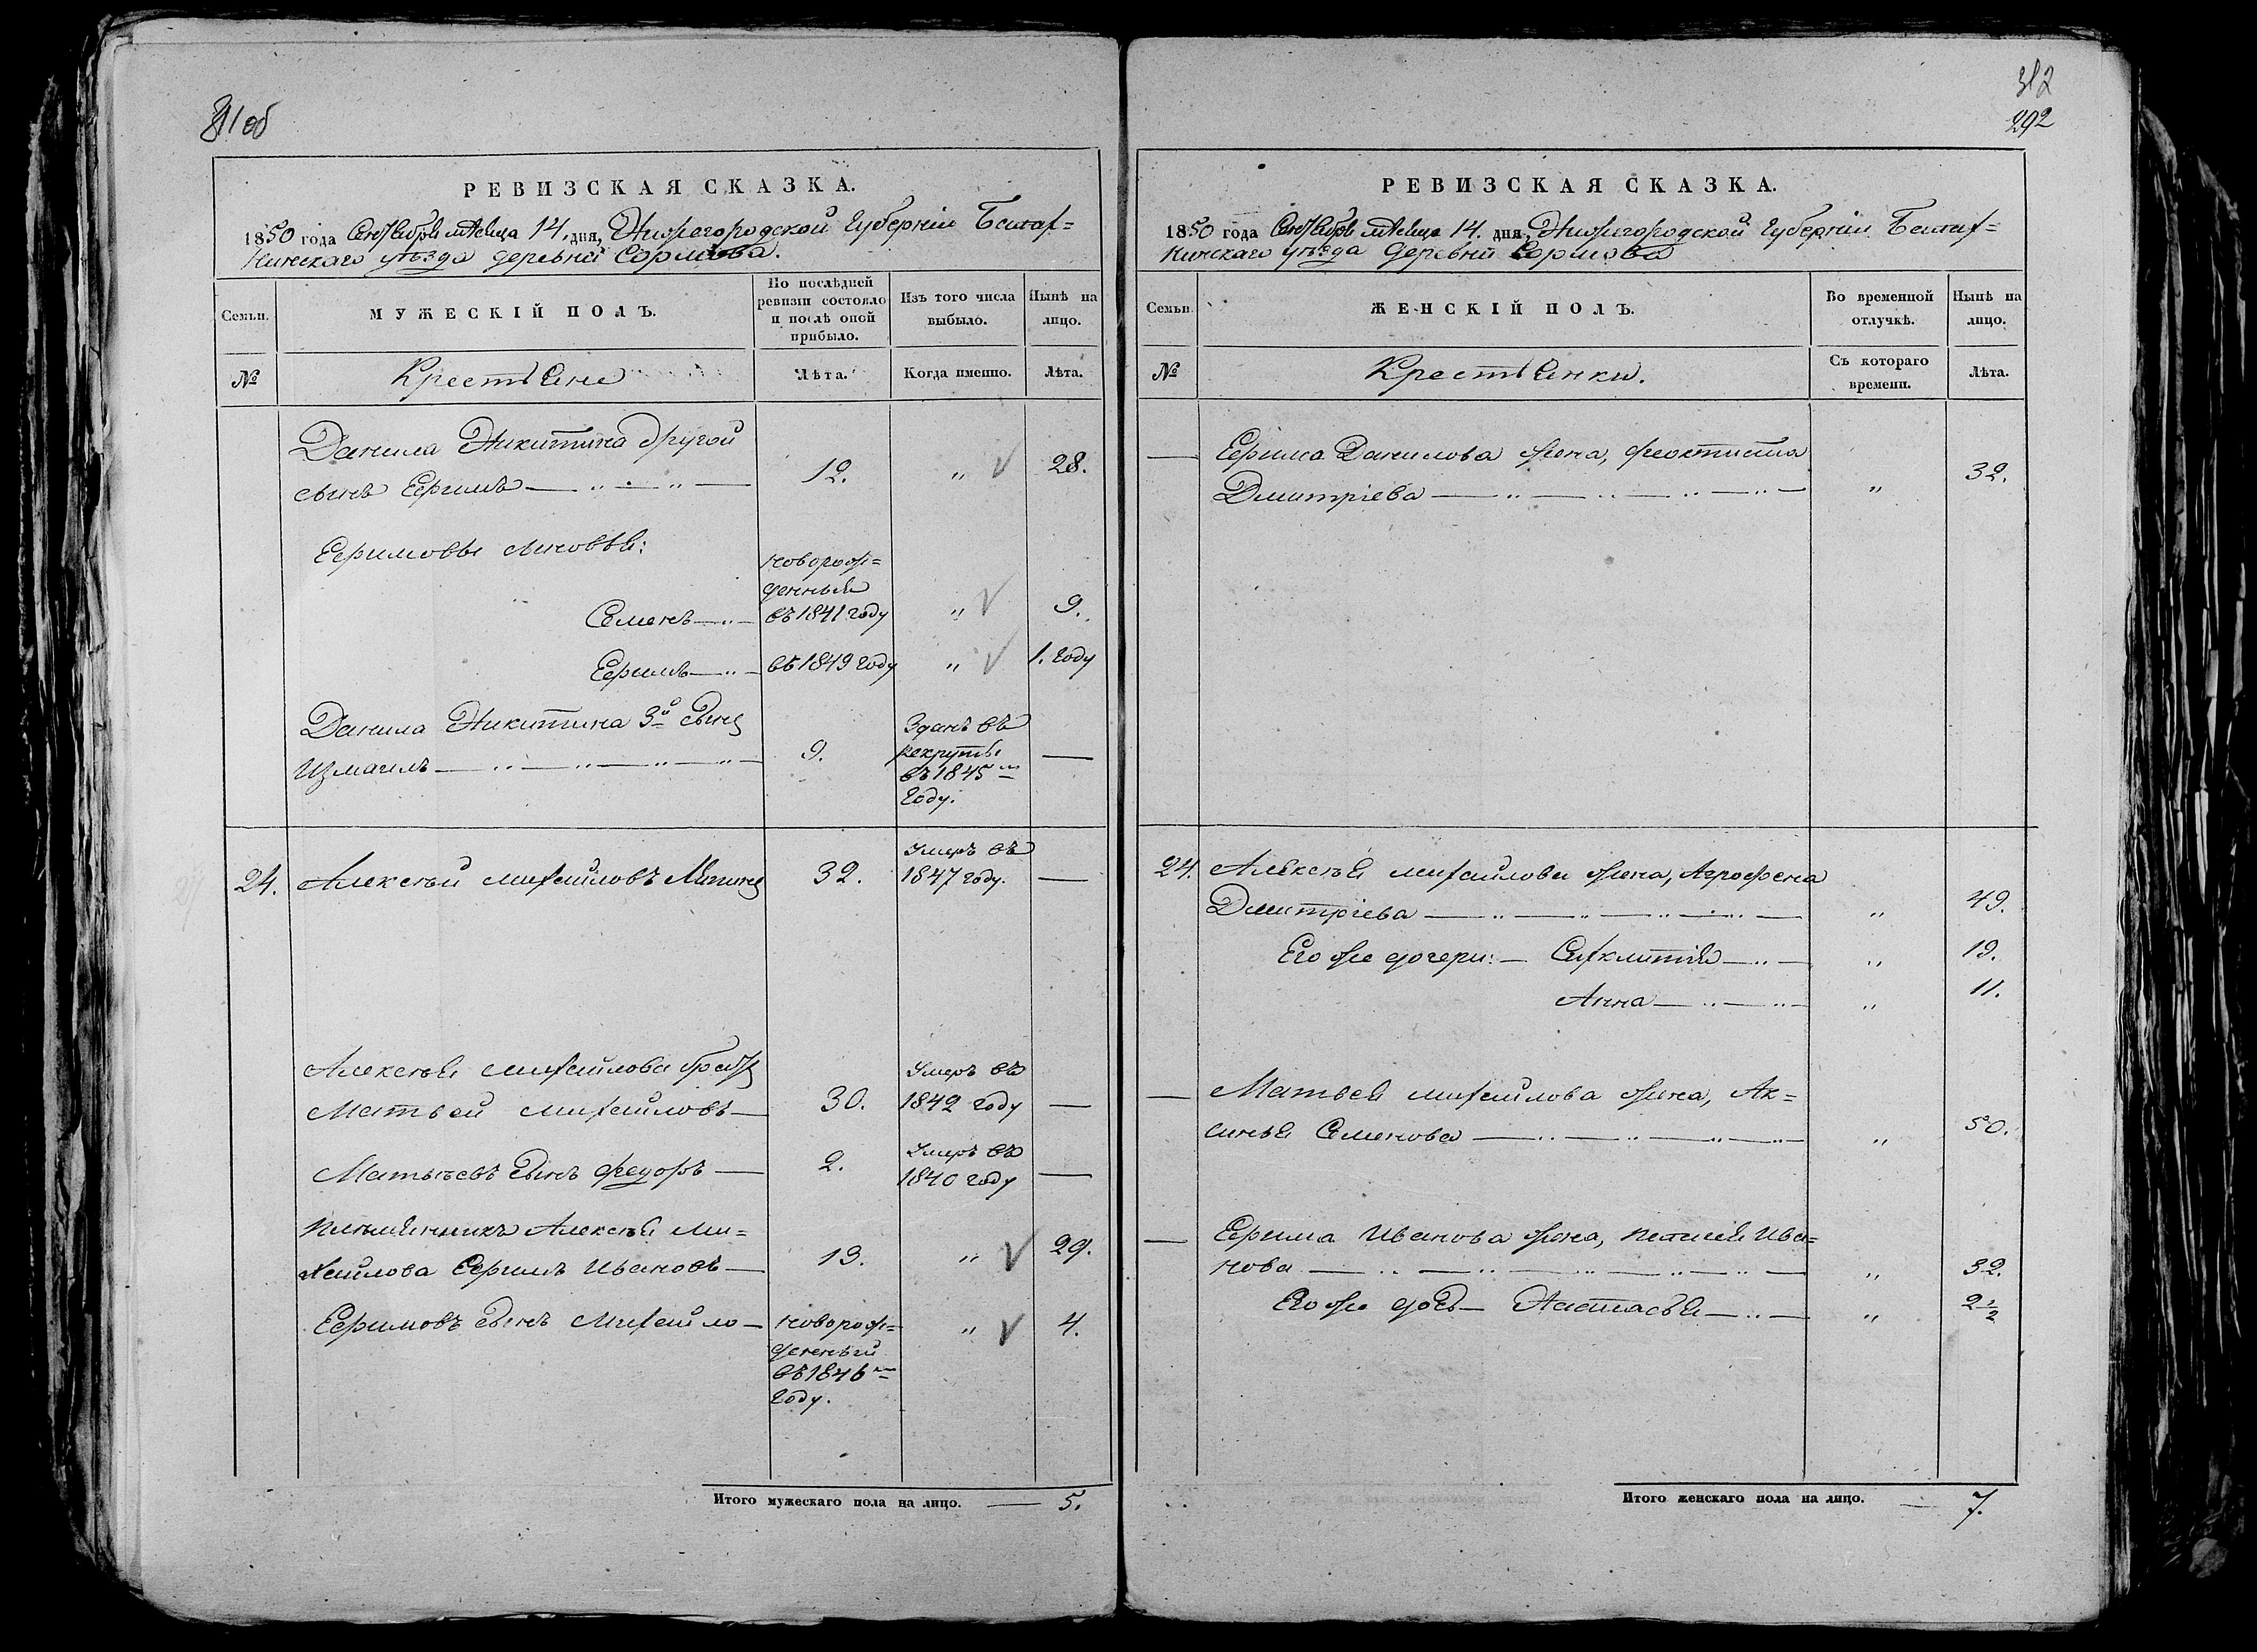 311 об
РЕВИЗСКАЯ СКАЗКА.
1850 года Сентября мѣсяца 14. дня, Нижегородской Губерніи Балах=
нинскаго уѣзда деревни Сормова.
Семьи.
МУЖЕСКІЙ ПОЛЪ.
По послѣдней
ревизіи состояло
и послѣ оной
прибыло.
Изъ того числа
выбыло.
Нынѣ на
лицо.
№
Крестьяне
Лѣта.
Когда именно.
Лѣта.
Данила Никитина другой
сынъ Ефимъ — 12. „ 28.
Ефимовы сыновья:
новорож=
денный
Семенъ — въ 1841 году „ 9.
Ефимъ — въ 1849 году „ 1. году
Данила Никитина 3й сынъ
Измаилъ — 9. Зданъ въ
рекруты —
въ 1845м
году.
24. Алексѣй Михайловъ 32. Умеръ въ
1847 году. —
Алексѣя Михайлова братъ
Матвей Михайловъ — 30. Умеръ въ
1842 году —
Матвѣевъ сынъ Федоръ — 2. Умеръ въ
1840 году —
Племянникъ Алексѣя Ми=
хайлова Ефимъ Ивановъ — 13. „ 29.
Ефимовъ сынъ Михайло — новорож= „ 4.
денный
въ 1846м
году.
Итого мужескаго пола на лицо. — 5.
312
292
РЕВИЗСКАЯ СКАЗКА.
1850 года Сентября мѣсяца 14. дня, Нижегородской Губерніи Балах=
нинскаго уѣзда деревни Сормова
Семьи.
ЖЕНСКІЙ ПОЛЪ.
Во временной
отлучкѣ.
Нынѣ на
лицо.
№
Крестьянки.
Съ котораго
времени.
Лѣта.
— Ефима Данилова жена, Феоктиста
Дмитріева — „ 32.
24. Алексѣя Михайлова жена, Агрофена
Дмитріева — „ 49.
Его же дочери: — Синклитія — „ 19.
Анна — „ 11.
— Матвея Михайлова жена, Ак=
синья Семенова — „ 50.
— Ефима Иванова жена, Пелагея Ива=
нова — „ 32.
Его же дочь — Настасья — „ 2 1/2
Итого женскаго пола на лицо. — 7.